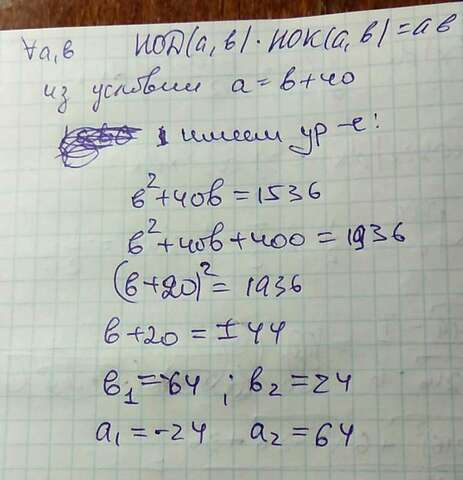 ∀a,в НОД(a,в)·НОК(a,в)=aв
из условии a=в+40
имеем ур-е:
в²+40в=1536
в²+40в+400=1936
(в+20)²=1936
в+20=±44
в₁=-64; в₂=24
a₁=-24 a₂=64